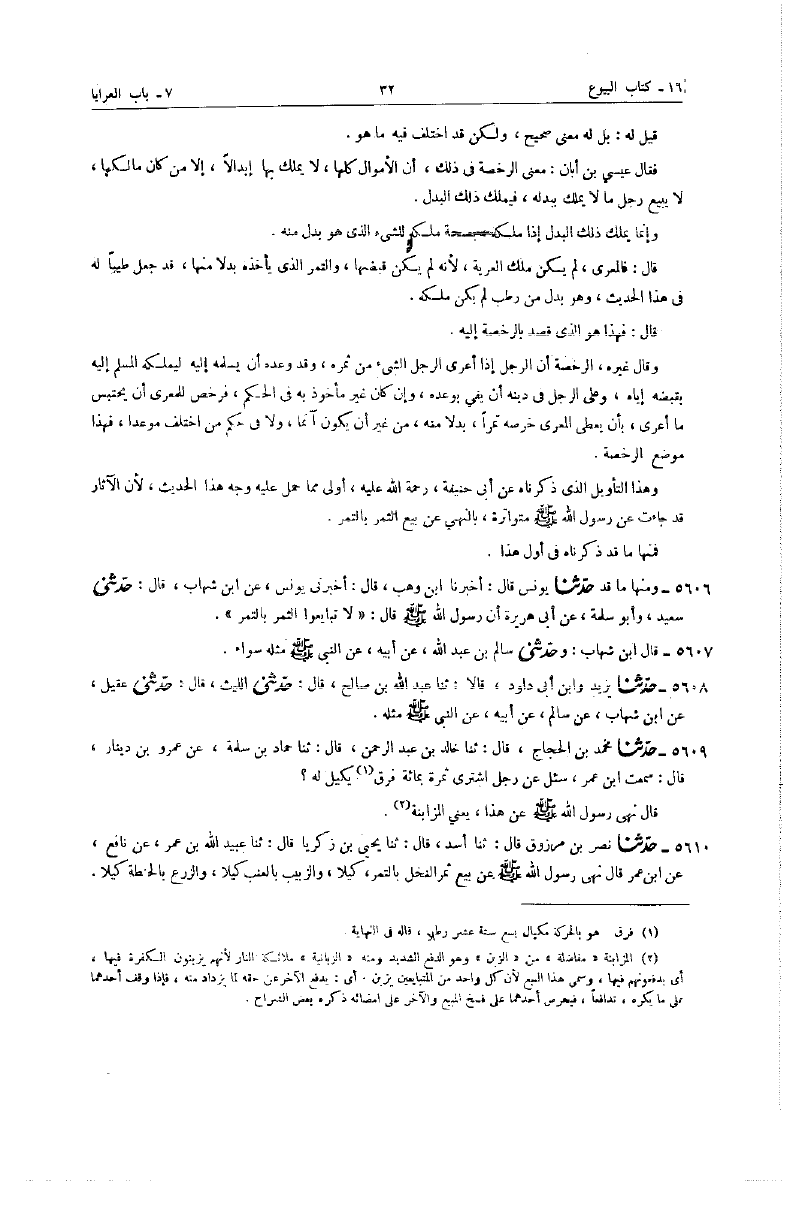 ١٦ - كتاب البيوع ٣٢ ٧ - باب العرايا
قيل له : بل له معنى صحيح ، ولكن قد اختلف فيه ما هو .
فقال عيسى بن أبان : معنى الرخصة فى ذلك ، أن الأموال كلها ، لا يملك بها إبدالاً ، إلا من كان مالكها ،
لا يبيع رجل ما لا يملك ببدله ، فيملك ذلك البدل .
وإنما يملك ذلك البدل إذا ملكه بصحة ملكه للشىء الذى هو بدل منه .
قال : فالمعرى ، لم يكن ملك العرية ، لأنه لم يكن قبضها ، والتمر الذى يأخذه بدلا منها ، قد جعل طيباً له
فى هذا الحديث ، وهو بدل من رطب لم يكن ملكه .
قال : فهذا هو الذى قصد بالرخصة إليه .
وقال غيره ، الرخصة أن الرجل إذا أعرى الرجل الشىء من ثمره ، وقد وعده أن يسلمه إليه ليملكه المسلم إليه
بقبضه إياه ، وعلى الرجل فى دينه أن يفي بوعده ، وإن كان غير مأخوذ به فى الحكم ، فرخص للمعرى أن يحتبس
ما أعرى ، بأن يعطى المعرى خرصه تمراً ، بدلا منه ، من غير أن يكون آثما ، ولا فى حكم من اختلف موعدا ، فهذا
موضع الرخصة .
وهذا التأويل الذى ذكرناه عن أبى حنيفة ، رحمة الله عليه ، أولى مما حمل عليه وجه هذا الحديث ، لأن الآثار
قد جاءت عن رسول الله ﷺ متواترة ، بالنهي عن بيع الثمر بالتمر .
فمنها ما قد ذكرناه فى أول هذا .
٥٦٠٦ - ومنها ما قد حدثنا يونس قال : أخبرنا ابن وهب ، قال : أخبرنى يونس ، عن ابن شهاب ، قال : حدثنى
سعيد ، وأبو سلمة ، عن أبى هريرة أن رسول الله ﷺ قال : « لا تبايعوا الثمر بالتمر » .
٥٦٠٧ - قال ابن شهاب : وحدثنى سالم بن عبد الله ، عن أبيه ، عن النبي ﷺ مثله سواء .
٥٦٠٨ - حدثنا يزيد وابن أبى داود ، قالا : ثنا عبد الله بن صالح ، قال : حدثنى الليث ، قال : حدثنى عقيل ،
عن ابن شهاب ، عن سالم ، عن أبيه ، عن النبي ﷺ مثله .
٥٦٠٩ - حدثنا محمد بن الحجاج ، قال : ثنا خالد بن عبد الرحمن ، قال : ثنا حماد بن سلمة ، عن عمرو بن دينار ،
قال : سمعت ابن عمر ، سئل عن رجل اشترى ثمرة بمائة فرق(١) يكيل له ؟
قال نهى رسول الله ﷺ عن هذا ، يعني المزابنة(٢) .
٥٦١٠ - حدثنا نصر بن مرزوق قال : ثنا أسد ، قال : ثنا يحيى بن زكريا قال : ثنا عبيد الله بن عمر ، عن نافع ،
عن ابن عمر قال نهى رسول الله ﷺ عن بيع ثمر النخل بالتمر، كيلا ، والزبيب بالعنب كيلا ، والزرع بالحنطة كيلا .
(١) فرق هو بالحركة مكيال يسع ستة عشر رطلا ، قاله فى النهاية .
(٢) المزابنة « مفاضلة » من « الزبن » وهو الدفع الشديد ومنه « الزبانية » ملائكة النار لأنهم يزبنون الكفرة فيها ،
أى يدفعونهم فيها ، وسمى هذا البيع لأن كل واحد من المتبايعين يزبن . أى : يدفع الآخر عن حقه لما يزداد منه ، فإذا وقف أحدهما
على ما يكره ، تدافعاً ، فيحرص أحدهما على فسخ البيع والآخر على امضائه ذكره بعض الشراح .